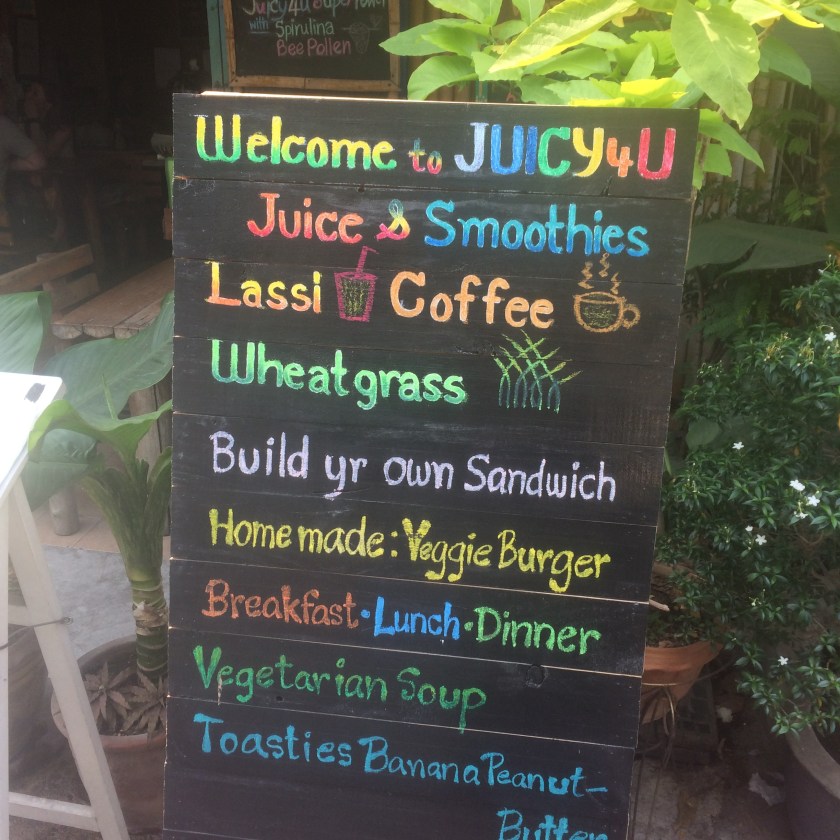 Juicy4u Super Power
with Spirulina
Bee Pollen
Welcome to JUICY4U
Juice & Smoothies
Lassi Coffee
Wheatgrass
Build yr own Sandwich
Home made: Veggie Burger
Breakfast·Lunch·Dinner
Vegetarian Soup
Toasties Banana Peanut-
Butter